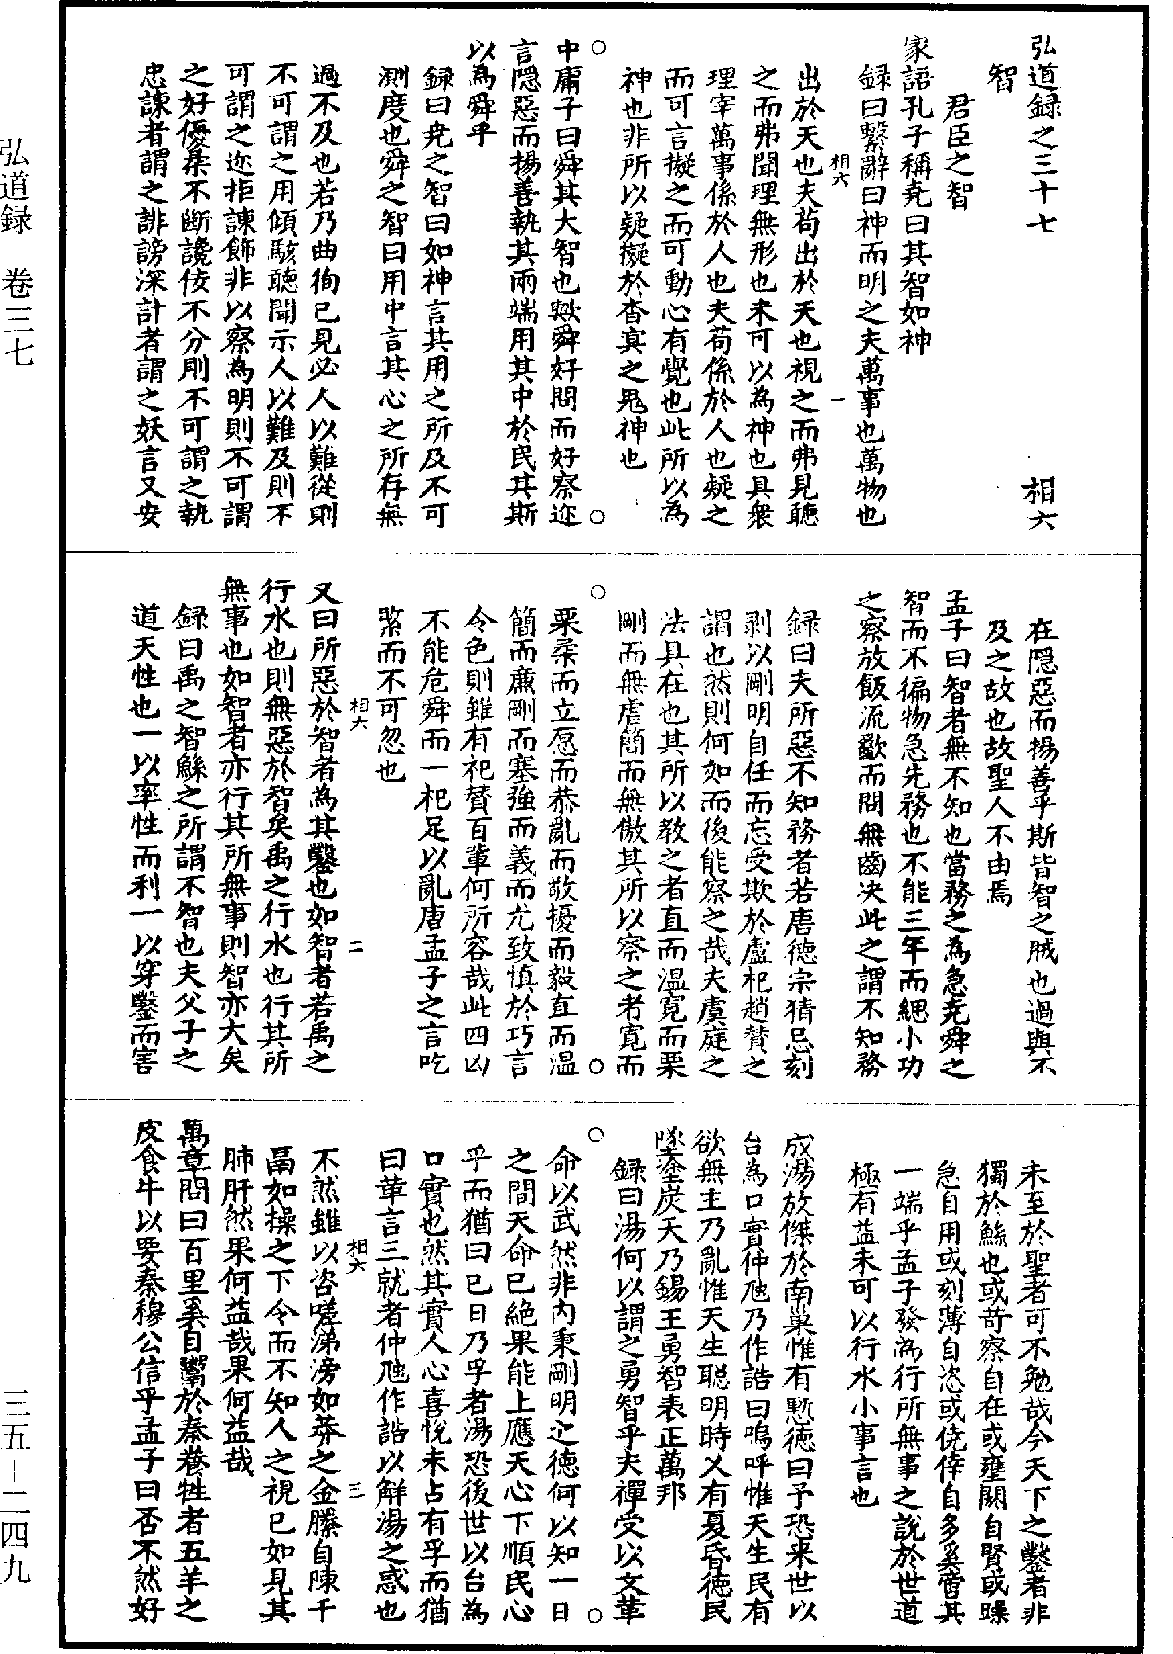 弘道録之三十七
相六
智
君臣之智
家語孔子稱堯曰其智如神
録曰繫辭曰神而明之夫萬事也萬物也
相六
一
出於天也夫苟出於天也視之而弗見聽
之而弗聞理無形也未可以為神也具衆
理宰萬事係於人也夫苟係於人也疑之
而可言擬之而可動心有覺也此所以為
神也非所以疑擬於杳冥之鬼神也
○
○
中庸子曰舜其大智也歟舜好問而好察迩
言隠惡而揚善執其兩端用其中於民其斯
以為舜乎
録曰堯之智曰如神言其用之所及不可
測度也舜之智曰用中言其心之所存無
過不及也若乃曲徇己見必人以難從則
不可謂之用傾駭聽聞示人以難及則不
可謂之迩拒諫飾非以察為明則不可謂
之好優柔不斷讒佞不分則不可謂之執
忠諫者謂之誹謗深計者謂之妖言又安
在隠惡而揚善乎斯皆智之賊也過與不
及之故也故聖人不由焉
孟子曰智者無不知也當務之為急堯舜之
智而不徧物急先務也不能三年而緦小功
之察放飯流歠而問無齒决此之謂不知務
録曰夫所惡不知務者若唐德宗猜忌刻
剥以剛明自任而忘受欺於盧杞趙賛之
謂也然則何如而後能察之哉夫虞庭之
法具在也其所以教之者直而温寛而栗
剛而無虐簡而無傲其所以察之者寛而
○
○
栗柔而立愿而恭亂而敬擾而毅直而温
簡而廉剛而塞強而義而尤致慎於巧言
令色則雖有祀賛百輩何所容哉此四凶
不能危舜而一杞足以亂唐孟子之言吃
緊而不可忽也
相六
二
又曰所惡於智者為其鑿也如智者若禹之
行水也則無惡於智矣禹之行水也行其所
無事也如智者亦行其所無事則智亦大矣
録曰禹之智鯀之所謂不智也夫父子之
道天性也一以率性而利一以穿鑿而害
未至於聖者可不勉哉今天下之鑿者非
獨於鯀也或苛察自在或壅閼自賢或躁
急自用或刻薄自恣或僥倖自多奚啻其
一端乎孟子發為行所無事之説於世道
極有益未可以行水小事言也
成湯放傑於南巢惟有慙德曰予恐来世以
台為口實仲虺乃作誥曰嗚呼惟天生民有
欲無主乃亂惟天生聪明時乂有夏昏德民
墜塗炭天乃錫王勇智表正萬邦
録曰湯何以謂之勇智乎夫禪受以文革
○
○
命以武然非内秉剛明之德何以知一日
之間天命已絶果能上應天心下順民心
乎而猶曰已日乃孚者湯恐後世以台為
口實也然其實人心喜悦未占有孚而猶
曰革言三就者仲虺作誥以解湯之惑也
相六
三
不然雖以咨嗟涕滂如莽之金縢自陳千
曷如操之下令而不知人之視已如見其
肺肝然果何益哉果何益哉
萬章問曰百里奚自鬻於秦養牲者五羊之
皮食牛以要秦穆公信乎孟子曰否不然好
弘道録　卷三七
三五－二四九